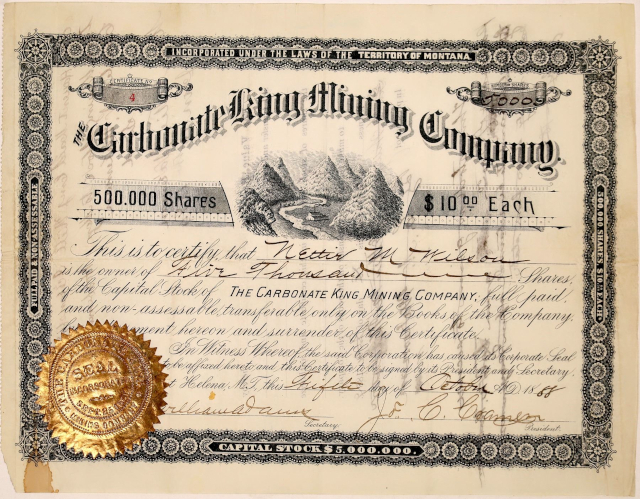 INCORPORATED UNDER THE LAWS OF THE TERRITORY OF MONTANA
CERTIFICATE NO.
4
5000
THE Carbonate King Mining Company.
500.000 Shares
$10 00 Each
FULL PAID & NON-ASSESSABLE
500,000 SHARES $10 EACH
This is to certify that Nettie M Wilson
is the owner of Five Thousand Shares
of the Capital Stock of THE CARBONATE KING MINING COMPANY, full paid
and non-assessable, transferable only on the Books of the Company
ment hereon and surrender of this Certificate.
In Witness Whereof, the said Corporation has caused its Corporate Seal
be affixed hereto and this Certificate to be signed by its President and Secretary
Helena, M.T. this day of A.D. 1888
SEAL
INCORPORATED
William
Jos. C.
Secretary.
President.
CAPITAL STOCK $5,000,000.